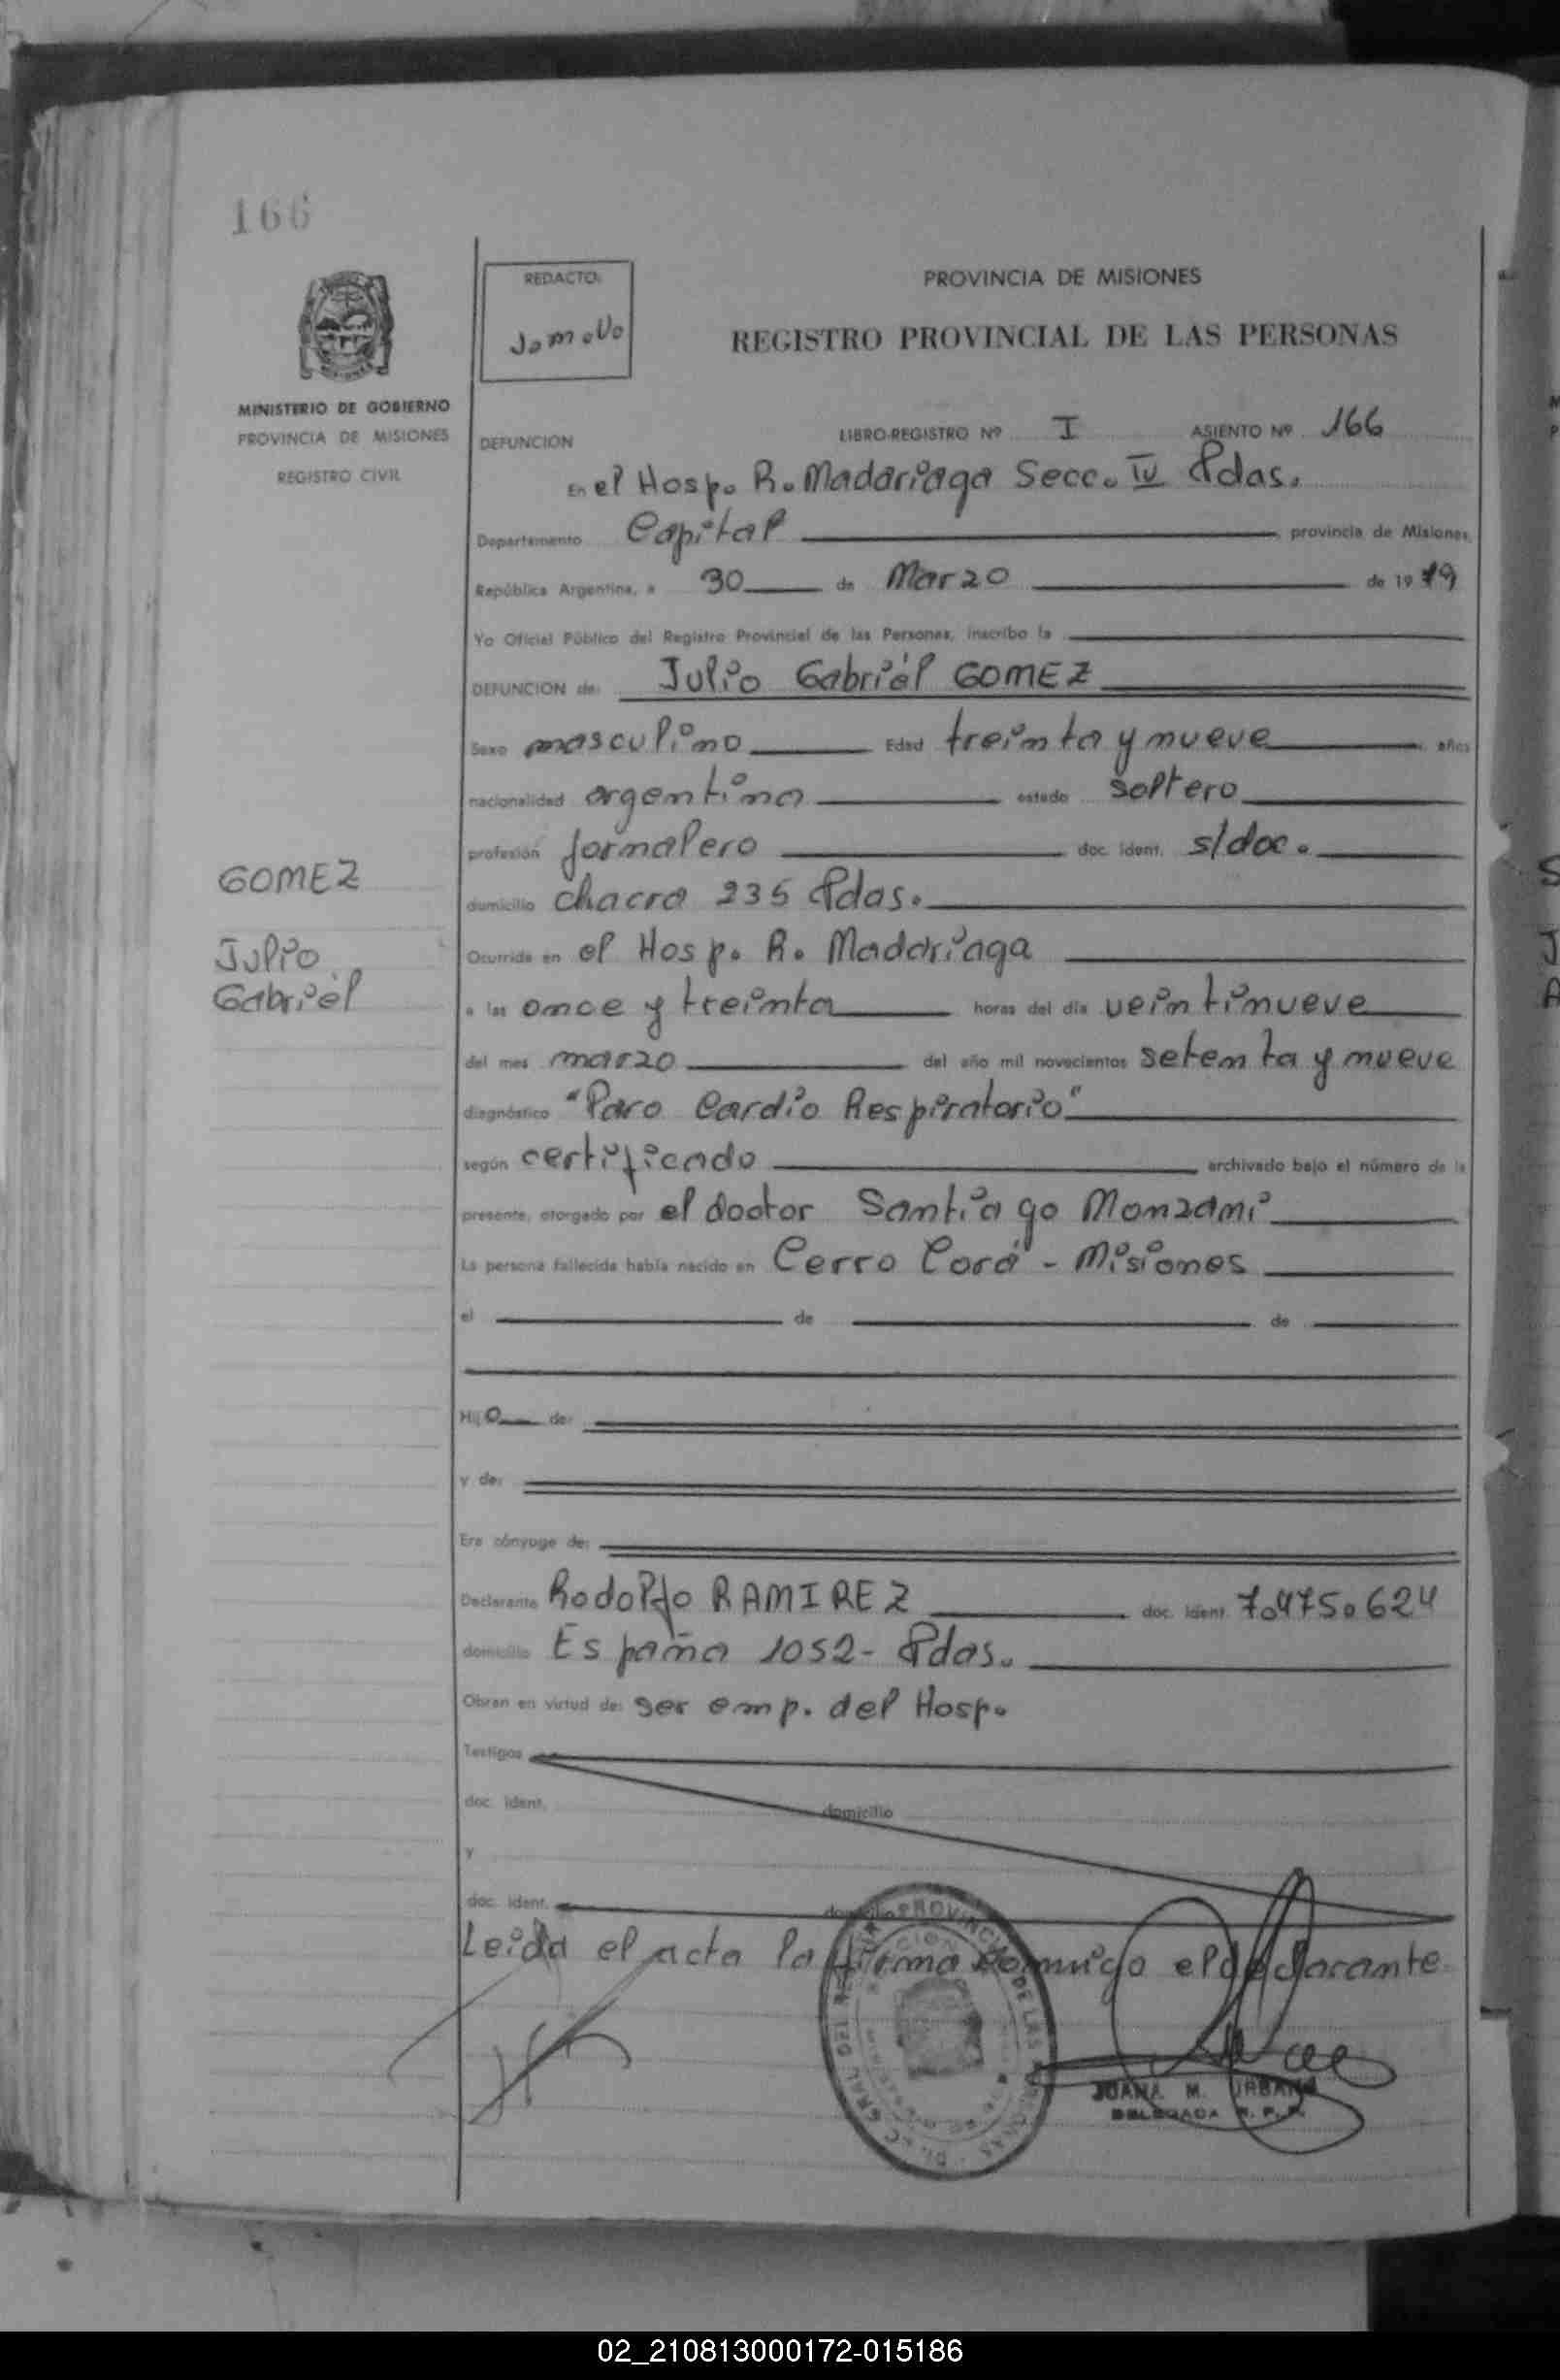 166
MINISTERIO DE GOBIERNO
PROVINCIA DE MISIONES
REGISTRO CIVIL
REDACTO:
PROVINCIA DE MISIONES
REGISTRO PROVINCIAL DE LAS PERSONAS
DEFUNCION LIBRO-REGISTRO Nº I ASIENTO Nº 166
En el Hosp. R. Madariaga Secc. IV Pdas.
Departamento Capital provincia de Misiones,
República Argentina, a 30 de Marzo de 1979
Yo Oficial Público del Registro Provincial de las Personas, inscribo la
DEFUNCION de: Julio Gabriél GOMEZ
Sexo masculino Edad treinta y nueve años
nacionalidad argentina estado soltero
profesión jornalero doc. ident. s/doc.
GOMEZ
domicilio chacra 235 Pdas.
Julio
Gabriél
Ocurrida en el Hosp. R. Madariaga
a las once y treinta horas del día veintinueve
del mes marzo del año mil novecientos setenta y nueve
diagnóstico "Paro Cardio Respiratorio"
según certificado archivado bajo el número de la
presente, otorgado por el doctor Santiago Monzani
La persona fallecida había nacido en Cerro Corá - Misiones
el de de
Hijo de:
y de:
Era cónyuge de:
Declarante Rodolfo RAMIREZ doc. ident. 7.475.624
domicilio España 1052- Pdas.
Obran en virtud de: ser emp. del Hosp.
Testigos
doc. ident. domicilio
y
doc. ident. domicilio
Leida el acta la firma conmigo el declarante
JUANA M. URBANO
DELEGADA R. P. P.
02_210813000172-015186